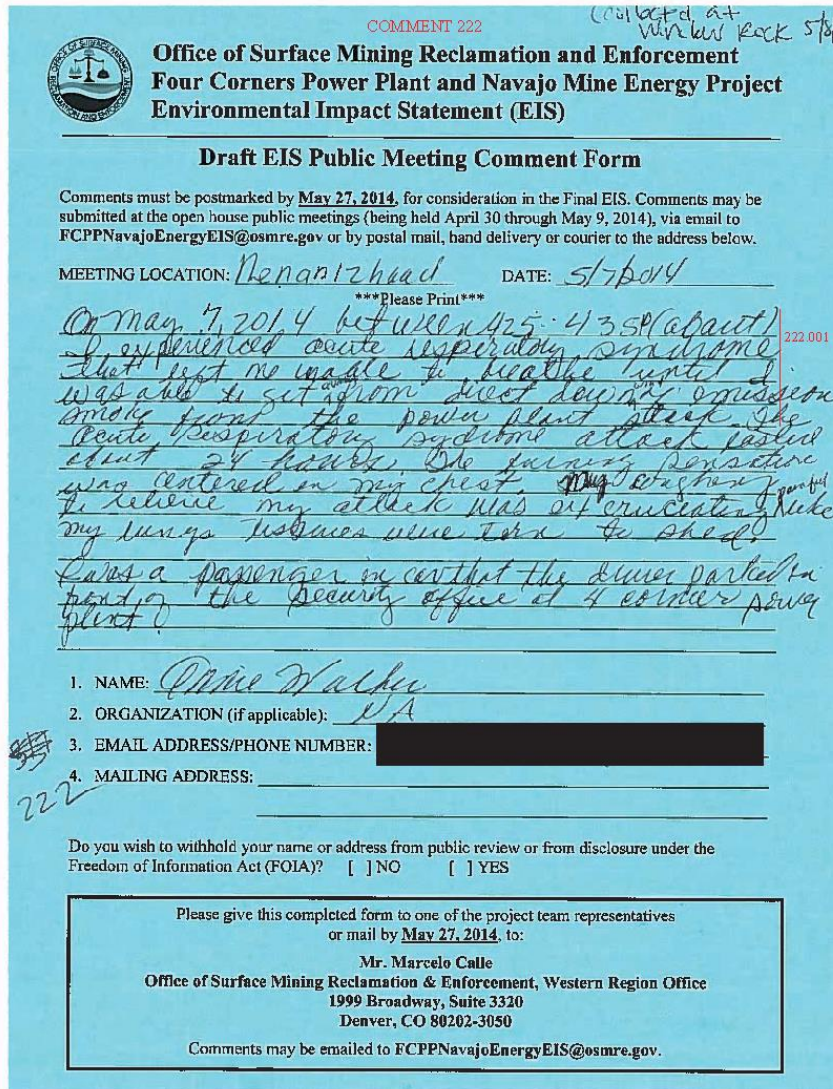 COMMENT 222
Collected at
Window Rock 5/8
Office of Surface Mining Reclamation and Enforcement
Four Corners Power Plant and Navajo Mine Energy Project
Environmental Impact Statement (EIS)
Draft EIS Public Meeting Comment Form
Comments must be postmarked by May 27, 2014, for consideration in the Final EIS. Comments may be
submitted at the open house public meetings (being held April 30 through May 9, 2014), via email to
FCPPNavajoEnergyEIS@osmre.gov or by postal mail, hand delivery or courier to the address below.
MEETING LOCATION: Nenanizhaad DATE: 5/7/2014
***Please Print***
On May 7, 2014 between 425-435P (about)
222.001
I experienced acute respiratory syndrome
that left me unable to breathe until I
was able to get away from direct down emission
smoke from the power plant stack. The
acute respiratory sydrome attack lasted
about 24 hours. The burning sensation
was centered in my chest. My coughing
to relieve my attack was excruciating painful like
my lungs tissues were torn to shed.
I was a passenger in car that the driver parked in
front of the security office at 4 corner power
plant.
1. NAME: Walker
2. ORGANIZATION (if applicable): NA
3. EMAIL ADDRESS/PHONE NUMBER:
4. MAILING ADDRESS:
222
Do you wish to withhold your name or address from public review or from disclosure under the
Freedom of Information Act (FOIA)? [ ] NO [ ] YES
Please give this completed form to one of the project team representatives
or mail by May 27, 2014, to:
Mr. Marcelo Calle
Office of Surface Mining Reclamation & Enforcement, Western Region Office
1999 Broadway, Suite 3320
Denver, CO 80202-3050
Comments may be emailed to FCPPNavajoEnergyEIS@osmre.gov.